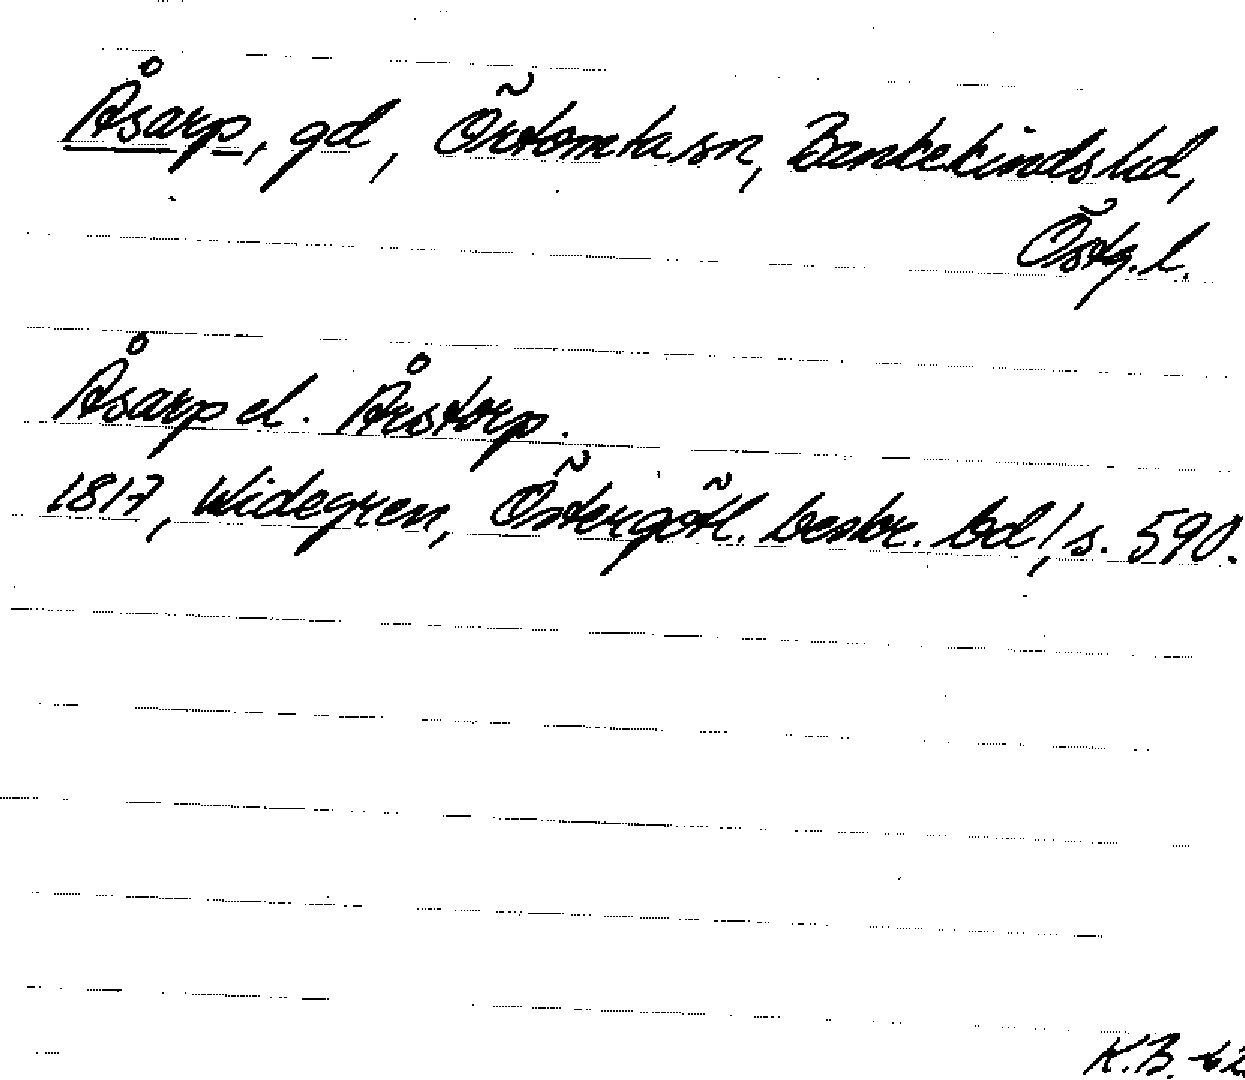 Åsarp, gd, Örtomta sn, Bankekinds hd,
Östg. l.
Åsarp el. Årstorp.
1817, Widegren, Östergötl. beskr. bd 1, s. 590.
K.B. -62